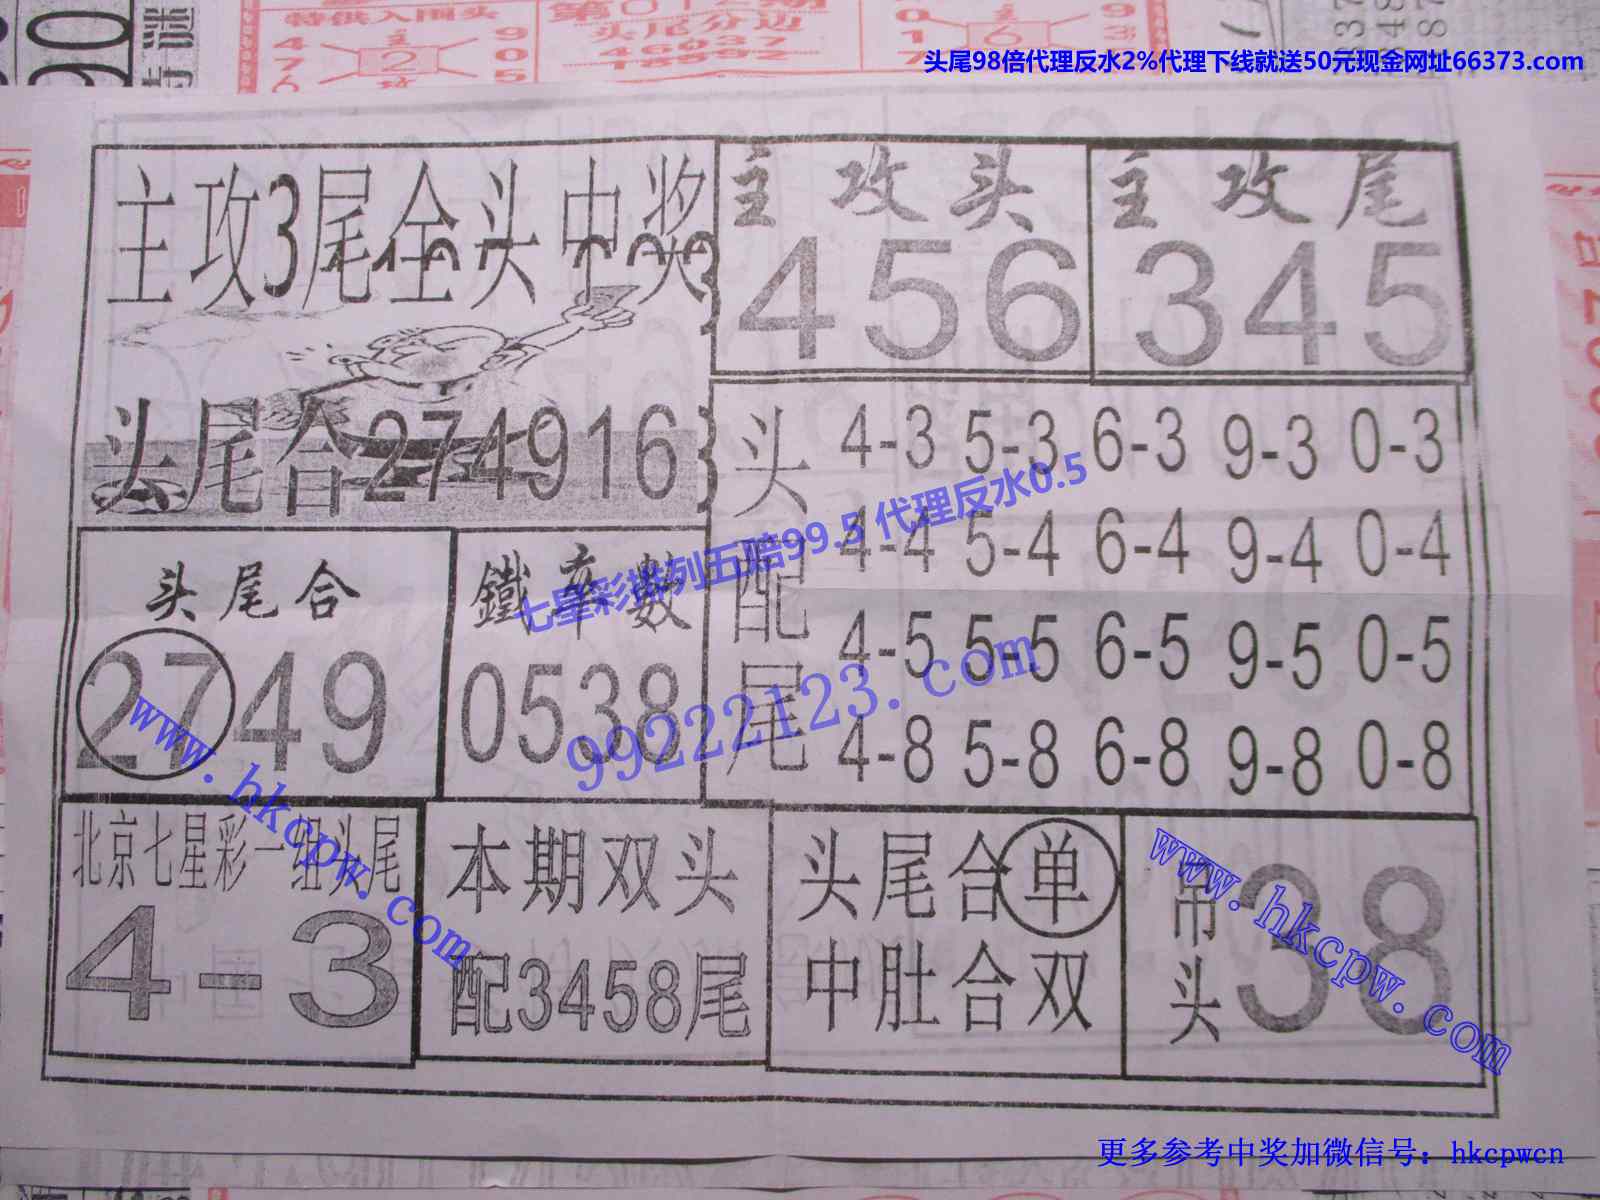 特供入围头
第012期
头尾分边
46037
18592
4
7
6
2
9
0
5
0
1
6
9
3
头尾98倍代理反水2%代理下线就送50元现金网址66373.com
主攻3尾全头中奖
头尾合274916
主攻头
456
主攻尾
345
头配尾
4-3 5-3 6-3 9-3 0-3
4-4 5-4 6-4 9-4 0-4
4-5 5-5 6-5 9-5 0-5
4-8 5-8 6-8 9-8 0-8
七星彩排列五赔99.5 代理反水0.5
头尾合
2749
鐵率數
0538
99222123.com
www.hkcpw.com
北京七星彩一组头尾
4-3
本期双头
配3458尾
头尾合单
中肚合双
吊头
38
www.hkcpw.com
更多参考中奖加微信号：hkcpwcn